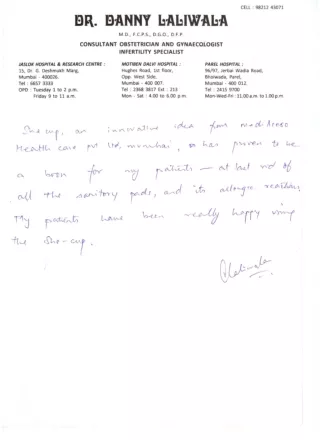 CELL : 98212 43071
DR. DANNY LALIWALA
M.D., F.C.P.S., D.G.O., D.F.P.
CONSULTANT OBSTETRICIAN AND GYNAECOLOGIST
INFERTILITY SPECIALIST
JASLOK HOSPITAL & RESEARCH CENTRE :
15, Dr. G. Deshmukh Marg,
Mumbai - 400026.
Tel : 6657 3333
OPD : Tuesday 1 to 2 p.m.
Friday 9 to 11 a.m.
MOTIBEN DALVI HOSPITAL :
Hughes Road, 1st floor,
Opp. West Side,
Mumbai - 400 007.
Tel : 2368 3817 Ext : 213
Mon - Sat : 4.00 to 6.00 p.m.
PAREL HOSPITAL :
96/97, Jerbai Wadia Road,
Bhoiwada, Parel,
Mumbai - 400 012.
Tel : 2415 9700
Mon-Wed-Fri : 11.00 a.m. to 1.00 p.m
She-cup, an innovative idea from
Health care pvt ltd, mumbai, has proven to be
a boon for my patients - at last rid of
all the sanitory pads, and its allergic
My patients have been really happy using
the She-cup.